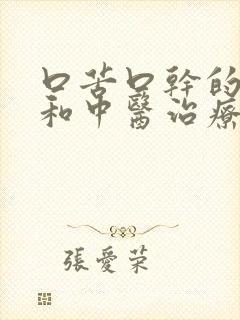 口苦口幹的
和中醫治療
張愛榮